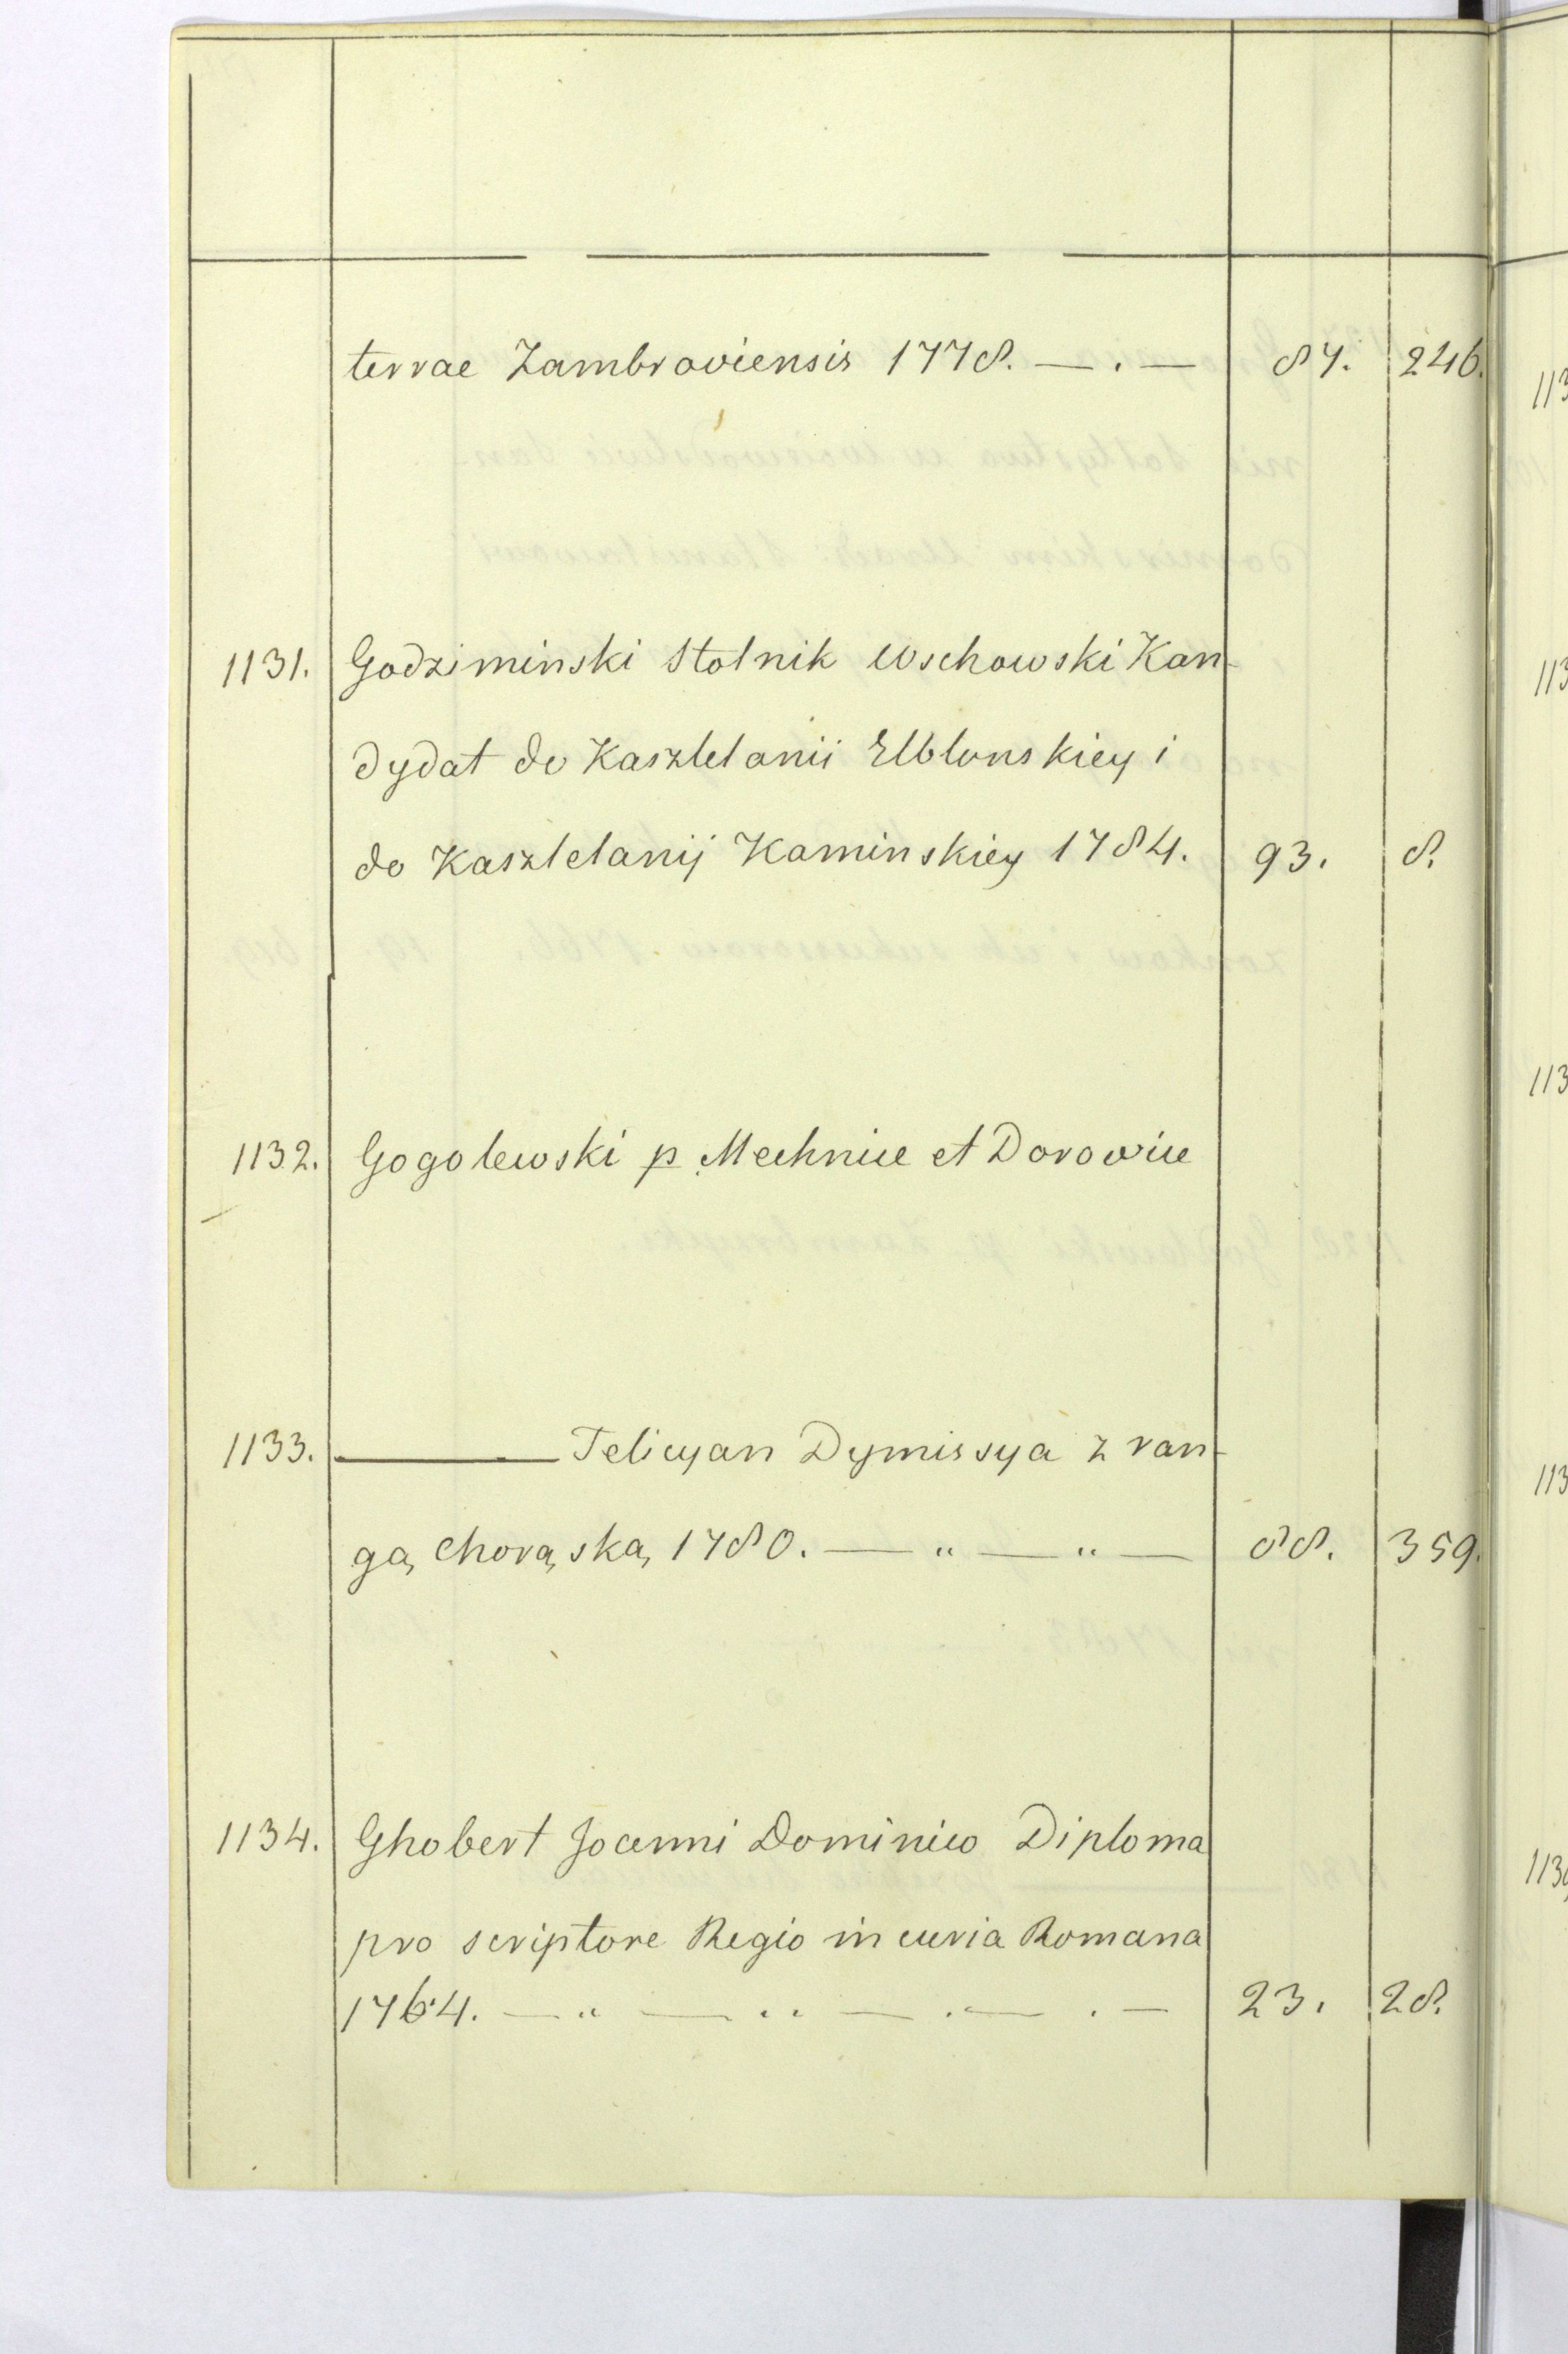 terrae Zambroviensis 1778. — . — 87. 246.
1131. Godziminski Stolnik Wschowski Kan-
dydat do Kasztelanii Elblonskiey i
do Kasztelanij Kaminskiey 1784. 93. 8.
1132. Gogolewski p Mechnice et Dorowice
1133. ——— Felicyan Dymissya z ran-
gą chorąską 1780. — " — " — 88. 359.
1134. Ghobert Joanni Dominico Diploma
pro scriptore Regio in curia Romana
1764. — " — " — . — . — 23. 28.